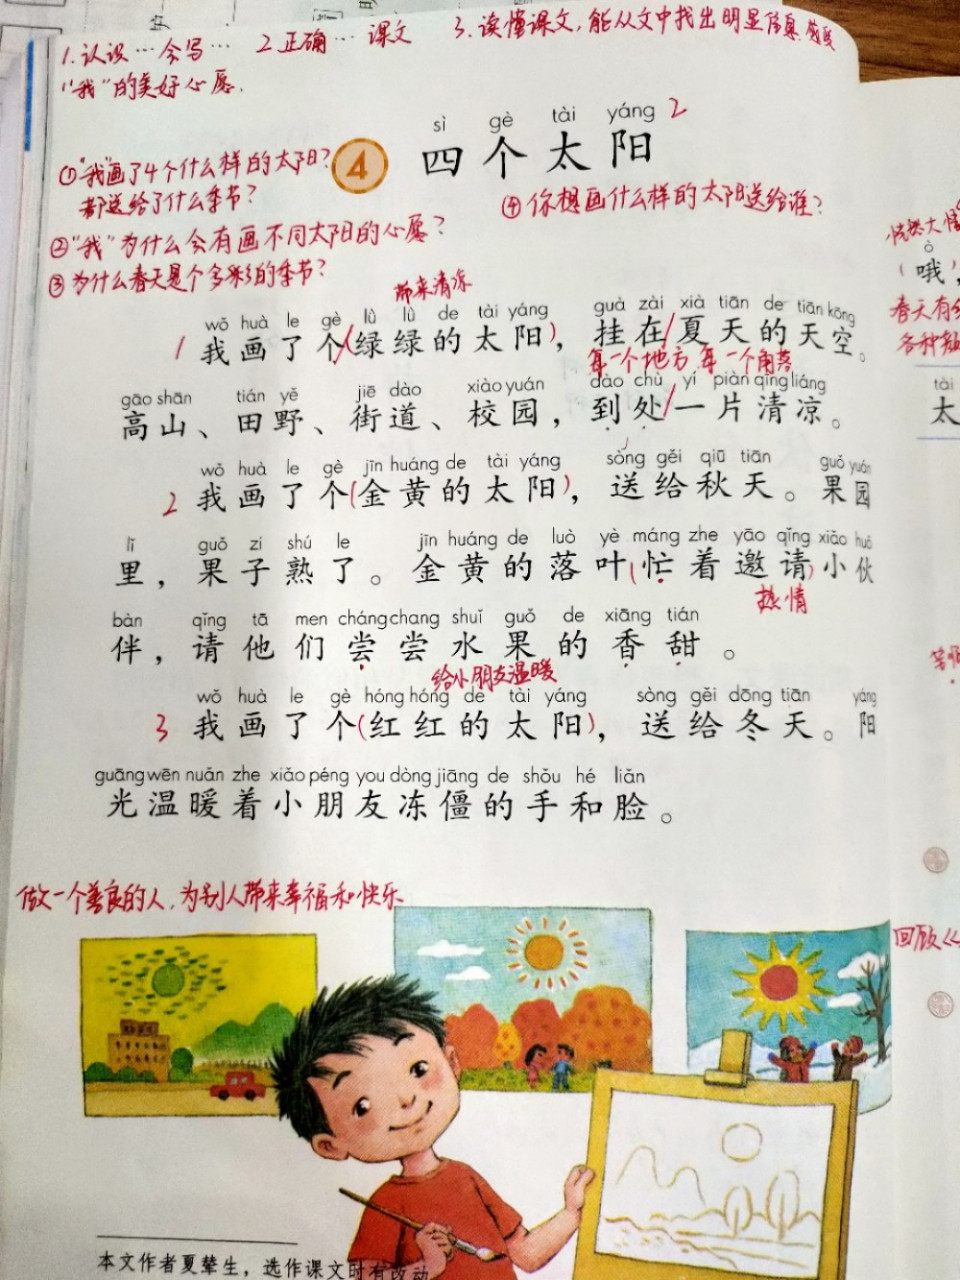 1.认识…会写… 2正确…课文 3.读懂课文,能从文中找出明显信息.感受
"我"的美好心愿.
sì gè tài yáng
4 四个太阳 2
①"我"画了4个什么样的太阳?
都送给了什么季节?
④你想画什么样的太阳送给谁?
②"我"为什么会有画不同太阳的心愿?
③为什么春天是个多彩的季节?
带来清凉
wǒ huà le gè lǜ lǜ de tài yáng guà zài xià tiān de tiān kōng
1 我画了个(绿绿的太阳),挂在夏天的天空。
每一个地方,每一个角落
gāo shān tián yě jiē dào xiào yuán dào chù yí piàn qīng liáng
高山、田野、街道、校园,到处一片清凉。
wǒ huà le gè jīn huáng de tài yáng sòng gěi qiū tiān guǒ yuán
2 我画了个(金黄的太阳),送给秋天。果园
lǐ guǒ zi shú le jīn huáng de luò yè máng zhe yāo qǐng xiǎo huǒ
里,果子熟了。金黄的落叶(忙着邀请)小伙
热情
bàn qǐng tā men cháng chang shuǐ guǒ de xiāng tián
伴,请他们尝尝水果的香甜。
给小朋友温暖
wǒ huà le gè hóng hóng de tài yáng sòng gěi dōng tiān yáng
3 我画了个(红红的太阳),送给冬天。阳
guāng wēn nuǎn zhe xiǎo péng you dòng jiāng de shǒu hé liǎn
光温暖着小朋友冻僵的手和脸。
做一个善良的人,为别人带来幸福和快乐
本文作者夏辇生,选作课文时有改动
恍然大悟
ò
(哦)
春天有
各种
tài
太
回顾《